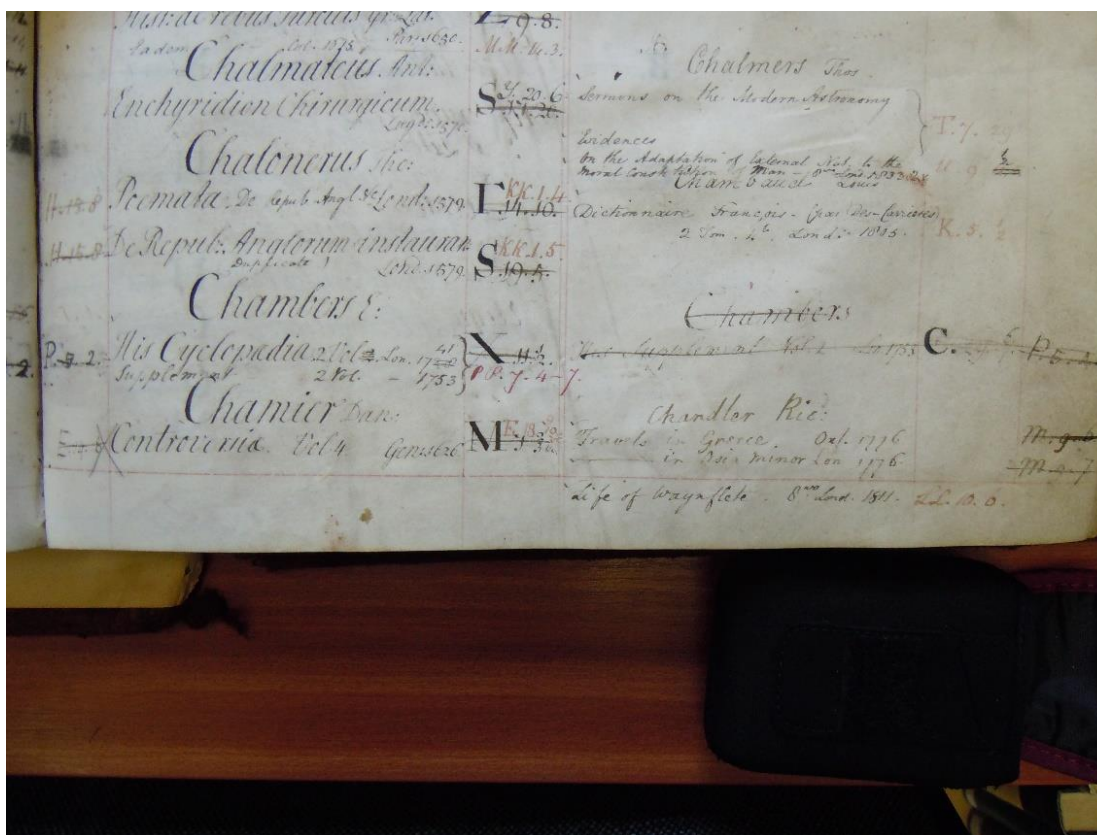 Hist: de rebus Turcicis Gr. Lat. Z 9.8.
Eadem Col. 1615. Par. 1650. M.M. 14.3.
Chalmateus. Ant:
Enchyridion Chirurgicum. S Y. 20.6
Lugd. 1570.
Chalonerus Tho:
H.15.8 Poemata. De Repub. Angl &c Lond: 1579. Γ KK.1.4
14.10.
H.15.8 De Repub: Anglorum instauran S KK.1.5
Duplicate Lond. 1579. 19.5.
Chambers E:
P. 9 2. His Cyclopædia 2 Vol. Lon. 1741 X 11.
Supplement 2 Vol. - 1753 PP. 7. 4-7.
Chamier Dan:
Controversiæ. Vol 4 Gen: 1626 M
Chalmers Thos.
Sermons on the Modern Astronomy
T. 7. 29
Evidences
On the Adaptation of External Nat. to the
Moral Constitution of Man - 8vo Lond. 1833
Chambaud Louis
Dictionnaire François - par Des Carrieres
2 Tom. 4to. Lond: 1815. K. 5. ½
Chambers
His Supplement Vol 2 Lo 1753 C.
Chandler Ric:
Travels in Greece. Oxf. 1776 M. 9.6
in Asia Minor Lon 1776 M. 9.7
Life of Waynflete. 8vo Lond. 1811. LL. 10. 0.